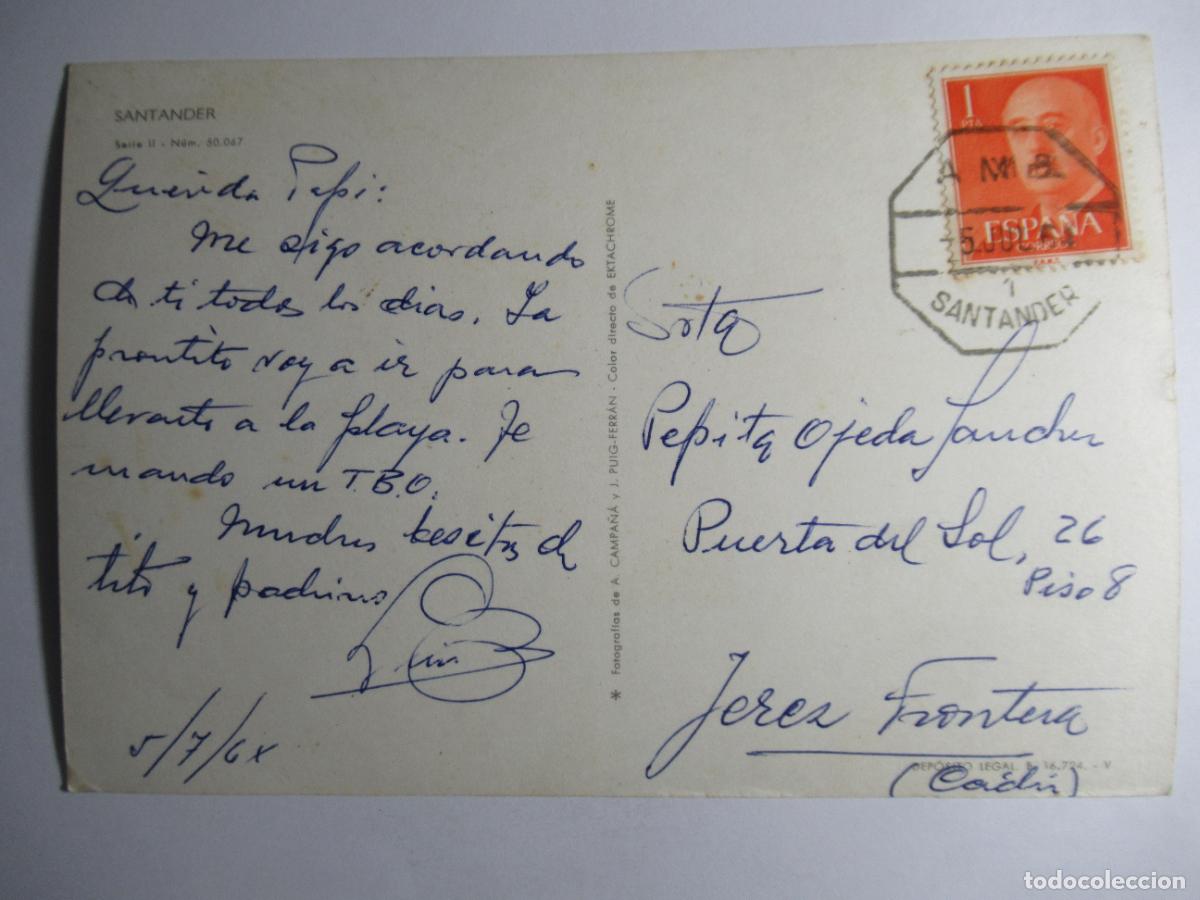 SANTANDER
Serie II - Núm. 80.067
Querida Pepi:
Me sigo acordando
de ti todos los dias. Ya
prontito voy a ir para
llevarte a la playa. Te
mando un T.B.O.
Muchos besitos de
tito y padrino
Luis
5/7/64
* Fotografías de A. CAMPAÑÁ y J. PUIG-FERRÁN - Color directo de EKTACHROME
1
PTA
ESPAÑA
CORREOS
F.N.M.T.
AMB.
1
SANTANDER
Srta
Pepita Ojeda Sanches
Puerta del Sol, 26
Piso 8
Jerez Frontera
(Cádiz)
DEPÓSITO LEGAL. B. 16.724. - V
todocoleccion